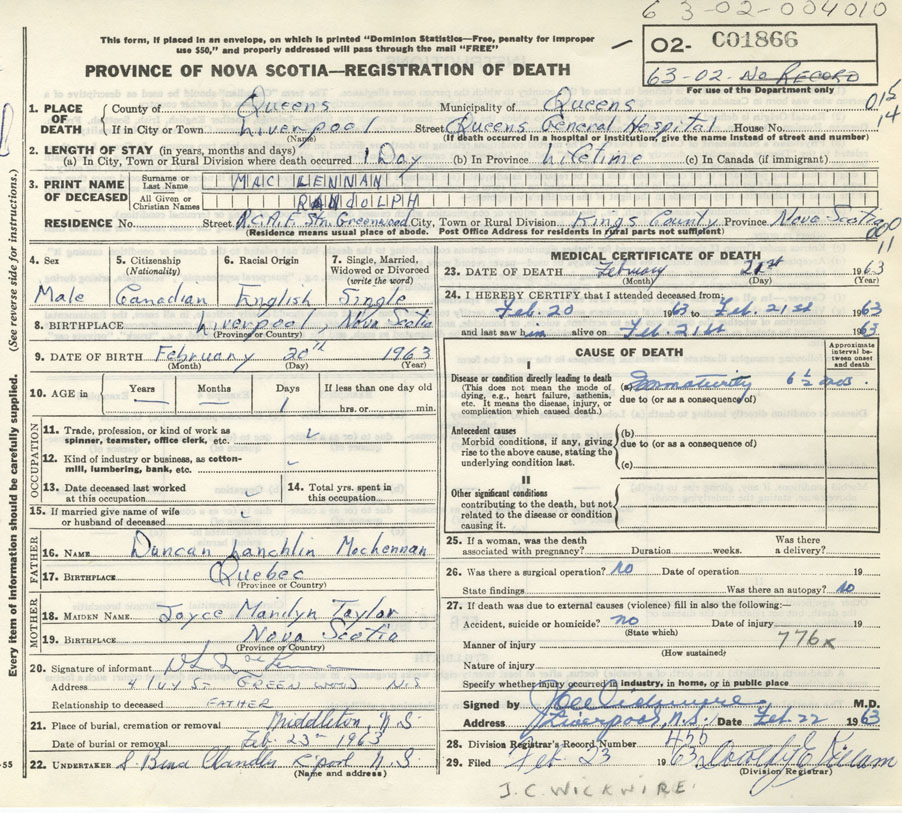 63-02-004010
This form, if placed in an envelope, on which is printed "Dominion Statistics—Free, penalty for improper
use $50," and properly addressed will pass through the mail "FREE"
02- C01866
63-02- No RECORD
For use of the Department only
PROVINCE OF NOVA SCOTIA—REGISTRATION OF DEATH
015
14
1. PLACE OF DEATH County of Queens Municipality of Queens
If in City or Town Liverpool Street Queens General Hospital House No.
(Name) (If death occurred in a hospital or institution, give the name instead of street and number)
2. LENGTH OF STAY (in years, months and days)
(a) In City, Town or Rural Division where death occurred 1 Day (b) In Province Lifetime (c) In Canada (if immigrant)
3. PRINT NAME OF DECEASED Surname or Last Name MAC LENNAN
All Given or Christian Names RANDOLPH
RESIDENCE No. Street R.C.A.F. Stn. Greenwood City, Town or Rural Division Kings County Province Nova Scotia
(Residence means usual place of abode. Post Office Address for residents in rural parts not sufficient)
000
11
4. Sex Male
5. Citizenship (Nationality) Canadian
6. Racial Origin English
7. Single, Married, Widowed or Divorced (write the word) Single
8. BIRTHPLACE Liverpool, Nova Scotia
(Province or Country)
9. DATE OF BIRTH February 20th 1963
(Month) (Day) (Year)
10. AGE in Years — Months — Days 1 If less than one day old hrs. or min.
OCCUPATION
11. Trade, profession, or kind of work as
spinner, teamster, office clerk, etc.
12. Kind of industry or business, as cotton-
mill, lumbering, bank, etc.
13. Date deceased last worked
at this occupation
14. Total yrs. spent in
this occupation
15. If married give name of wife
or husband of deceased
FATHER
16. NAME Duncan Lanchlin MacLennan
17. BIRTHPLACE Quebec
(Province or Country)
MOTHER
18. MAIDEN NAME Joyce Marilyn Taylor
19. BIRTHPLACE Nova Scotia
(Province or Country)
20. Signature of informant
Address GREENWOOD N.S
Relationship to deceased FATHER
21. Place of burial, cremation or removal Middleton, N.S.
Date of burial or removal Feb. 23rd 1963
22. UNDERTAKER Chandler L'pool N.S.
(Name and address)
MEDICAL CERTIFICATE OF DEATH
23. DATE OF DEATH February 21st 1963
(Month) (Day) (Year)
24. I HEREBY CERTIFY that I attended deceased from:
Feb. 20 1963 to Feb. 21st 1963
and last saw him alive on Feb. 21st 1963
CAUSE OF DEATH
Approximate interval between onset and death
I
Disease or condition directly leading to death
(This does not mean the mode of
dying, e.g., heart failure, asthenia,
etc. It means the disease, injury, or
complication which caused death.)
(a) Immaturity 6½ mos.
due to (or as a consequence of)
Antecedent causes
Morbid conditions, if any, giving
rise to the above cause, stating the
underlying condition last.
(b)
due to (or as a consequence of)
(c)
II
Other significant conditions
contributing to the death, but not
related to the disease or condition
causing it.
25. If a woman, was the death
associated with pregnancy? Duration weeks. Was there
a delivery?
26. Was there a surgical operation? no Date of operation 19
State findings Was there an autopsy? no
27. If death was due to external causes (violence) fill in also the following:—
Accident, suicide or homicide? no Date of injury 19
(State which)
Manner of injury 776x
(How sustained)
Nature of injury
Specify whether injury occurred in industry, in home, or in public place
Signed by M.D.
Address Liverpool, N.S. Date Feb. 22 1963
28. Division Registrar's Record Number
29. Filed Feb 23 1963
(Division Registrar)
J.C. WICKWIRE.
Every item of information should be carefully supplied. (See reverse side for instructions.)
-55